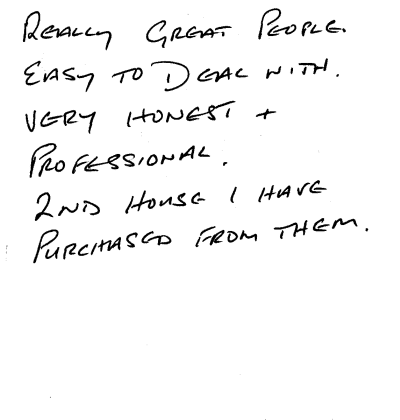 REALLY GREAT PEOPLE.
EASY TO DEAL WITH.
VERY HONEST +
PROFESSIONAL.
2ND HOUSE I HAVE
PURCHASED FROM THEM.